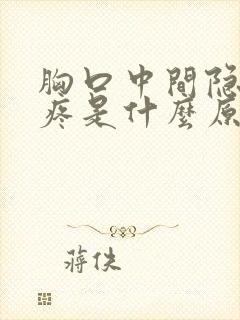 胸口中間隐
疼是什麼原
蒋佚